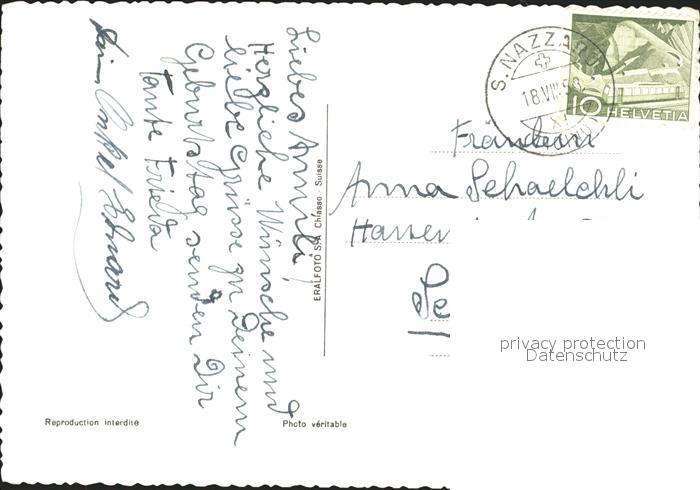 Liebes Anneli!
Herzliche Wünsche und
liebe Grüsse zu Deinem
Geburtstag senden Dir
Tante Frieda
Dein Onkel Eduard
ERALFOTO S.A. Chiasso - Suisse
Reproduction interdite
Photo véritable
S. NAZZARO
18.VIII.
10
HELVETIA
Fräulein
Anna Schaelchli
privacy protection
Datenschutz